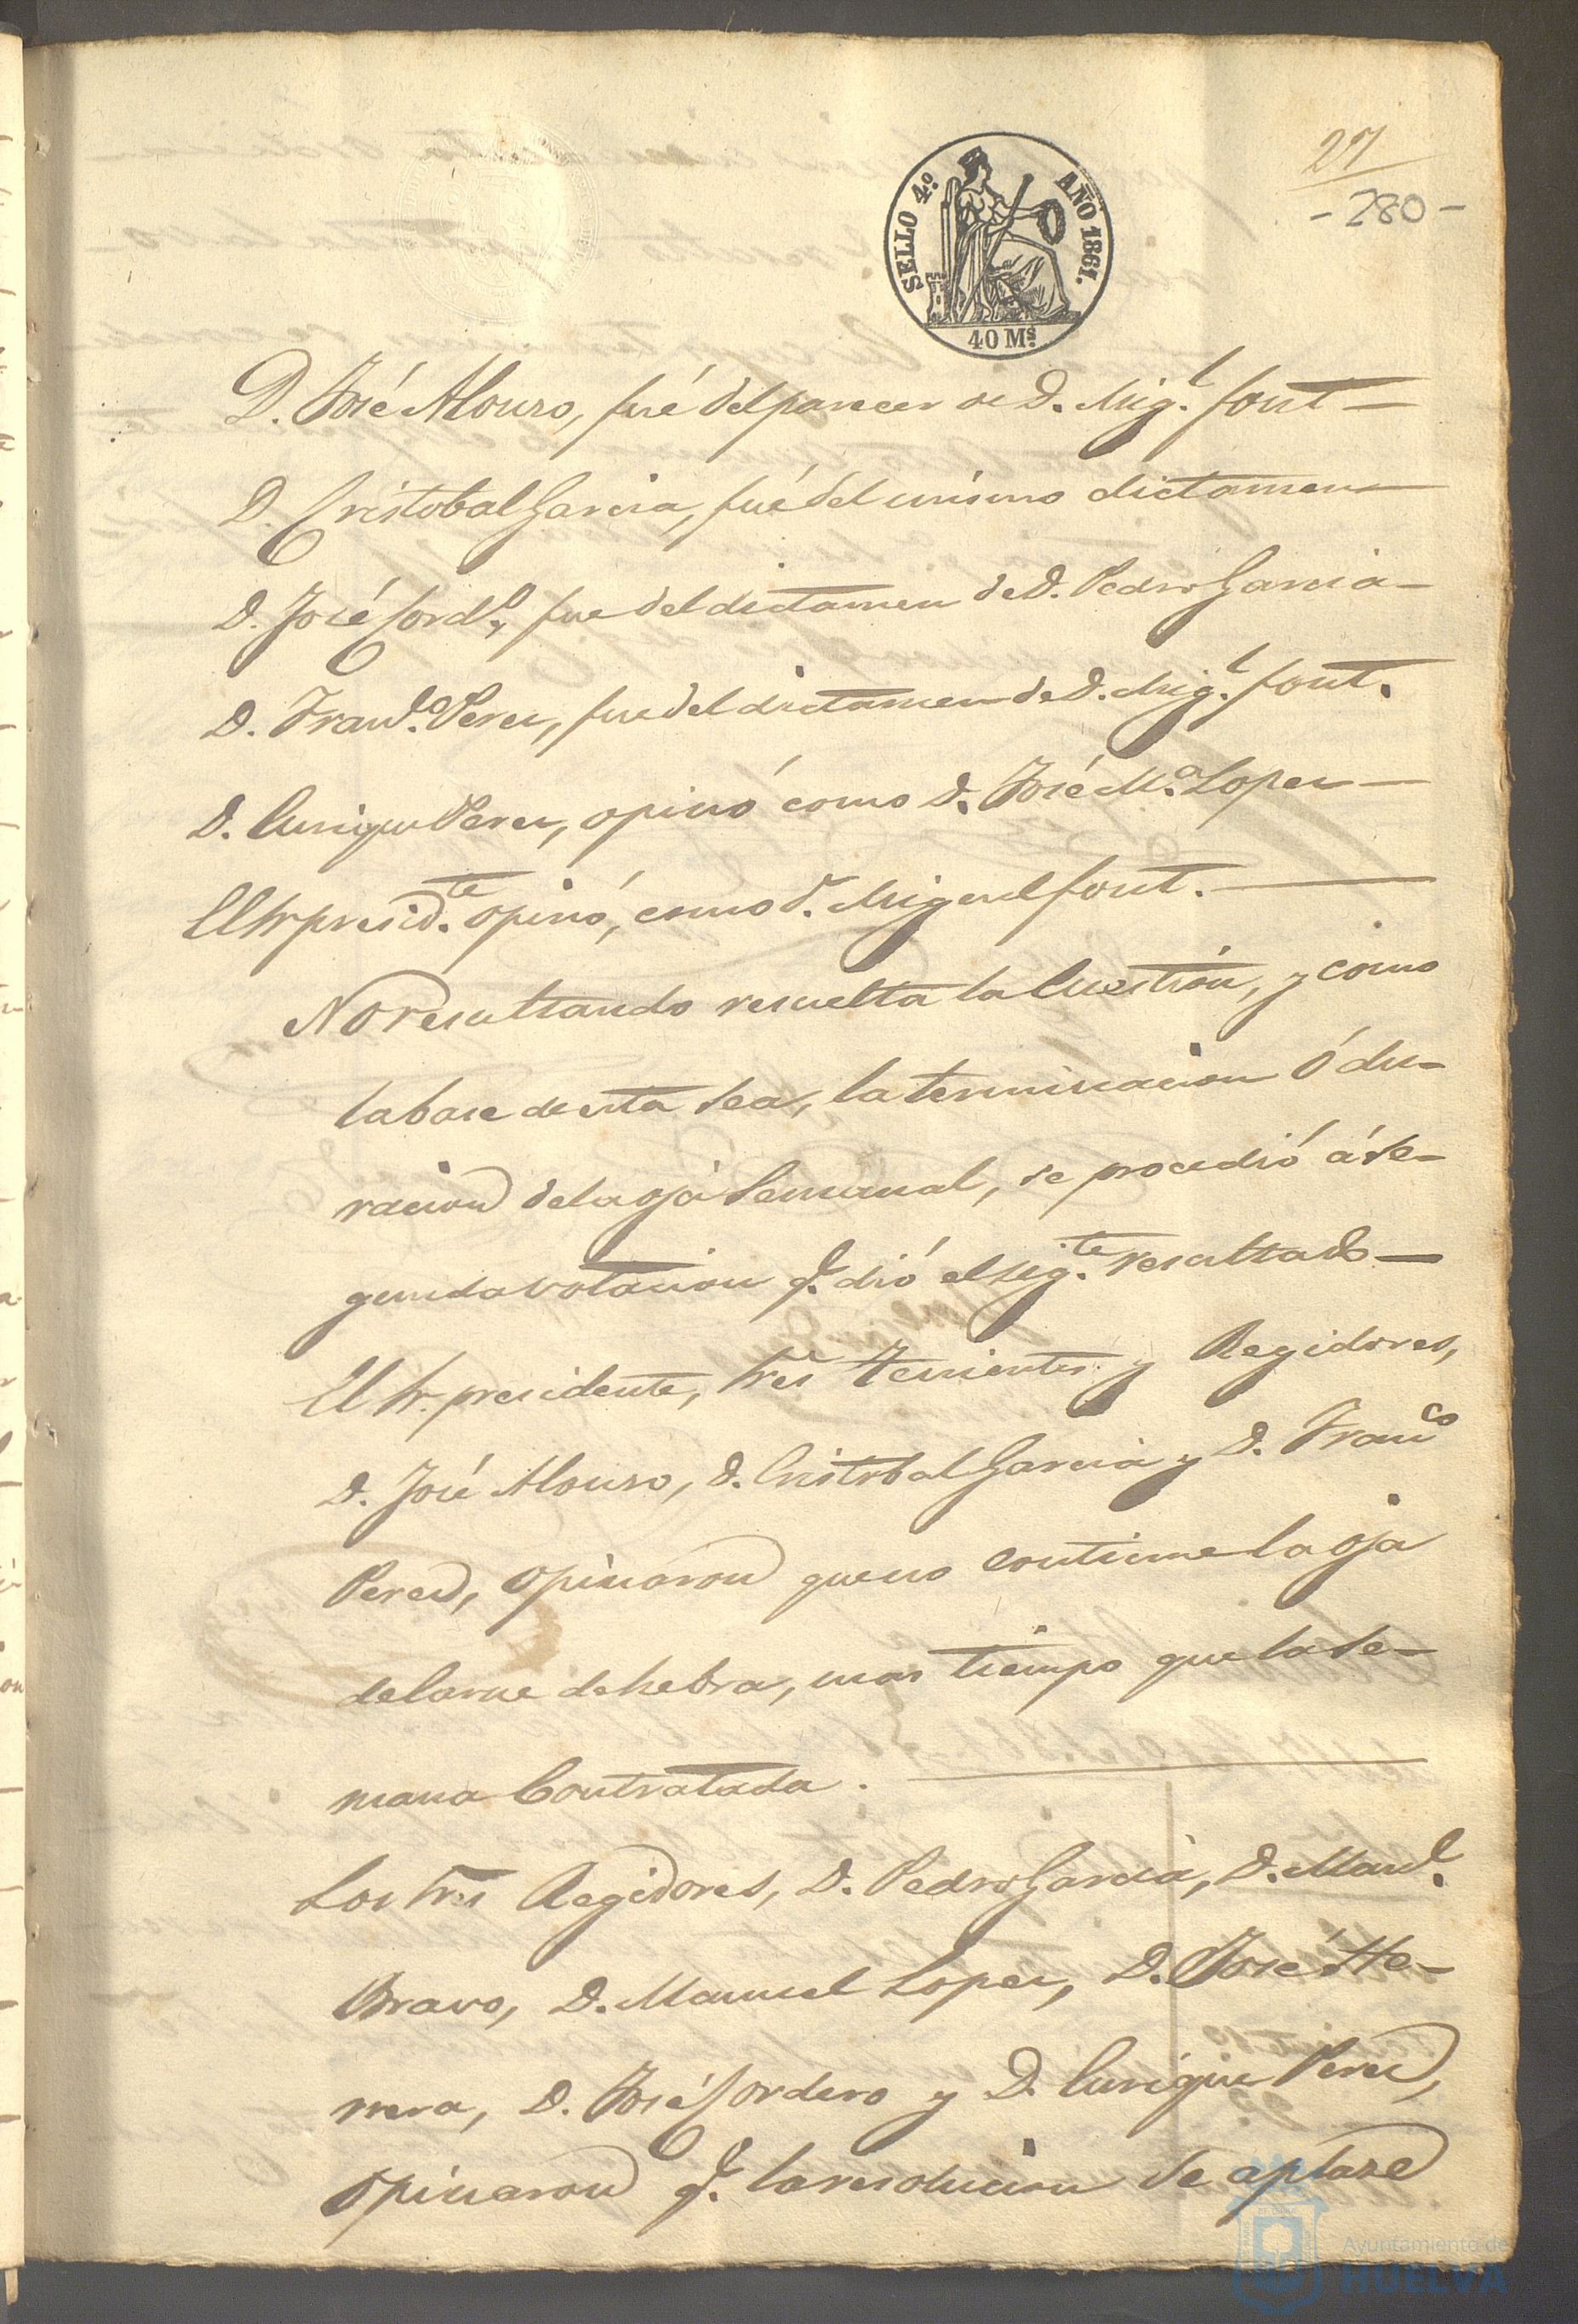 27
- 280 -
SELLO 4.º AÑO 1861.
40 Ms.
D. José Alonso, fué del parecer de D. Migl. font —
D. Cristobal Garcia, fué del mismo dictamen —
D. José Cord.o, fue del dictamen de D. Pedro Garcia —
D. Fran.co Perez, fue del dictamen de D. Migl. font.
D. Enrique Perez, opinó como D. José M.a Lopez —
El Sr presid.te opinó, como D. Miguel font. —
No resultando resuelta la Cuestión, y como
la base de esta sea, la terminacion ó du-
racion de la oja Semanal, se procedió á se-
gunda votacion q. dió el sig.te resultado —
El Sr. presidente, tres Tenientes y Regidores,
D. José Alonso, D. Cristobal Garcia y D. Franco
Perez, opinaron que no continue la oja
de Carne de hebra, mas tiempo que la se-
mana Contratada. —
Los tres Regidores, D. Pedro Garcia, D. Manl.
Bravo, D. Manuel Lopez, D. José He-
rrera, D. José Cordero y D. Enrique Perez,
opinaron q. la resolucion se aplaze
Ayuntamiento de
HUELVA